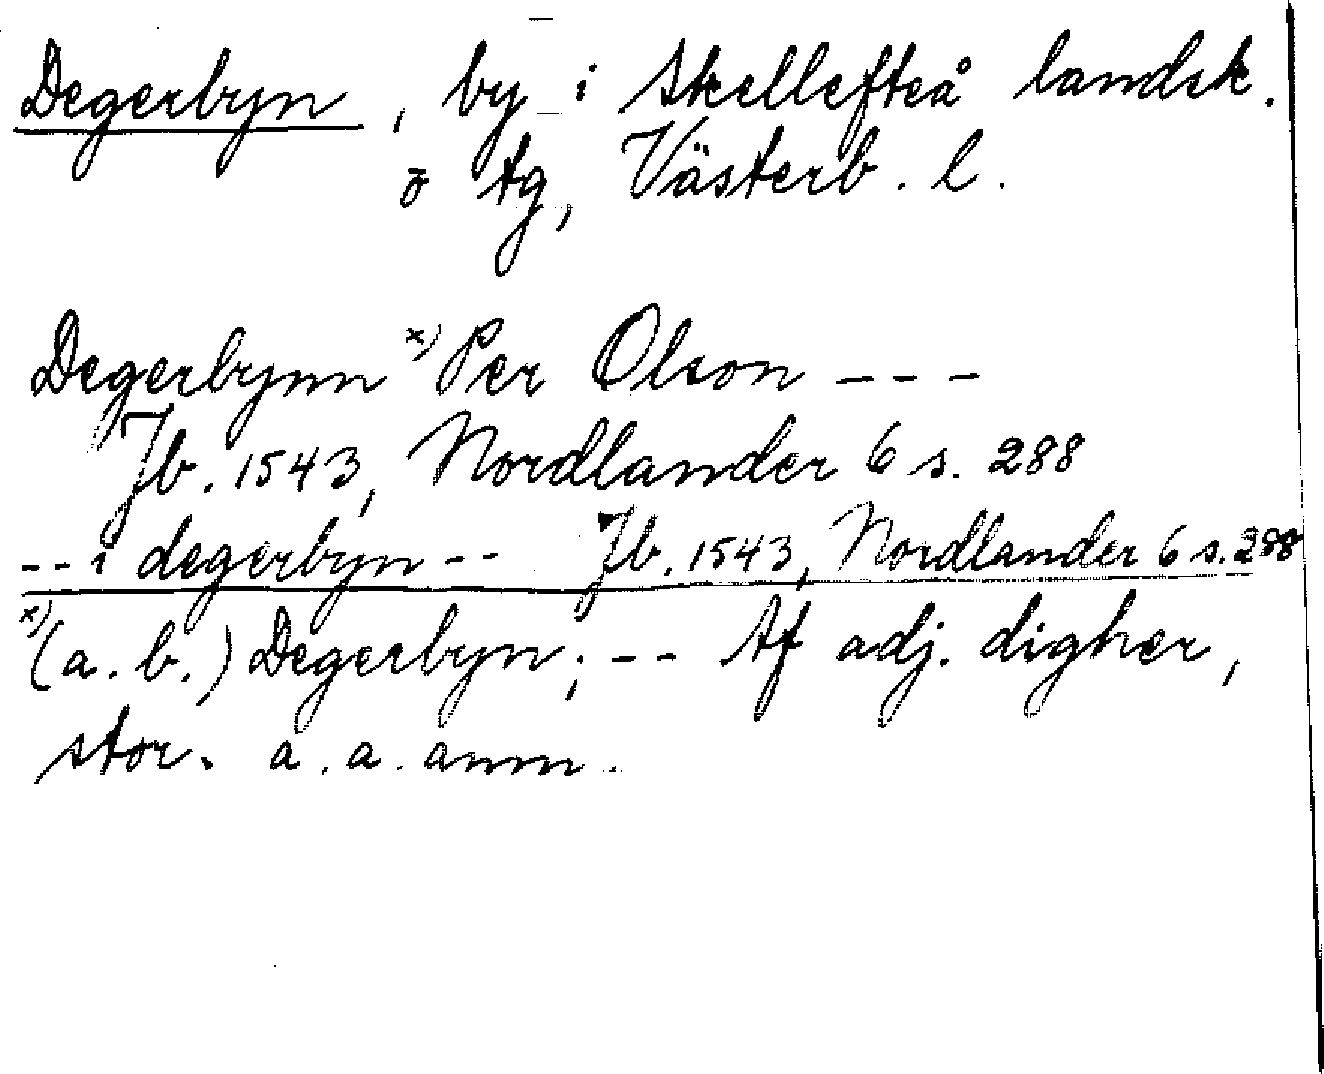 Degerbyn, by i Skellefteå landsk.
o tg, Västerb. l.
Degerbynn x) Per Olson ---
Jb. 1543, Nordlander 6 s. 288
-- i degerbyn -- Jb. 1543, Nordlander 6 s. 288
x) (a. b.) Degerbyn; -- Af adj. digher,
stor. a. a. anm.